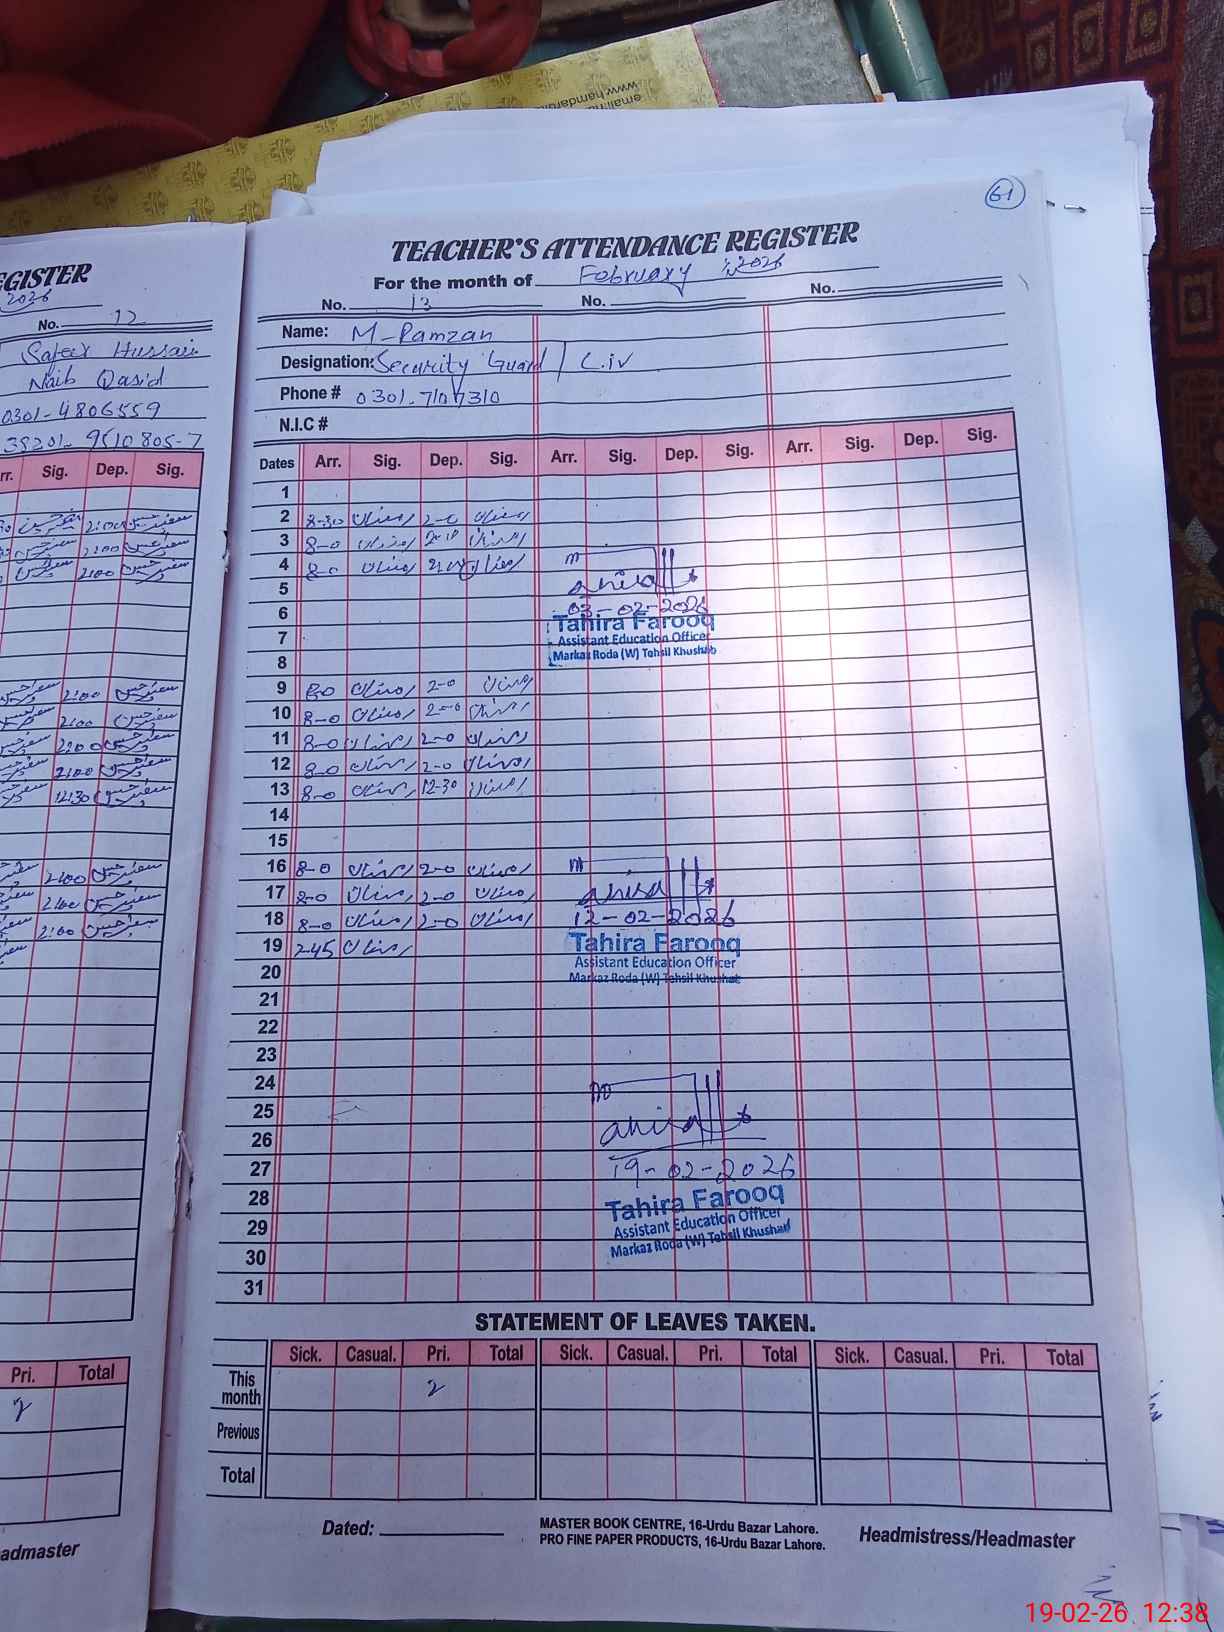 email:
www.hamdard
61
EGISTER
2026
No. 12
Safeer Hussain
Naib Qasid
0301-4806559
38201-9510805-7
rr. Sig. Dep. Sig.
2:00
2:00
2:00
2:00
2:00
2:00
2:00
12:30
2:00
2:00
2:00
Pri. Total
2
admaster
TEACHER'S ATTENDANCE REGISTER
For the month of February 2026
No. 13 No. No.
Name: M-Ramzan
Designation: Security Guard / C.iv
Phone # 0301-7107310
N.I.C #
Dates Arr. Sig. Dep. Sig. Arr. Sig. Dep. Sig. Arr. Sig. Dep. Sig.
1
2 8-30 رمضان 2-0 رمضان
3 8-0 رمضان 2-0 رمضان
4 8-0 رمضان 2-0 رمضان
5
6 03-02-2026
Tahira Farooq
7 Assistant Education Officer
8 Markaz Roda (W) Tehsil Khushab
9 8-0 رمضان 2-0 رمضان
10 8-0 رمضان 2-0 رمضان
11 8-0 رمضان 2-0 رمضان
12 8-0 رمضان 2-0 رمضان
13 8-0 رمضان 12-30 رمضان
14
15
16 8-0 رمضان 2-0 رمضان
17 8-0 رمضان 2-0 رمضان
18 8-0 رمضان 2-0 رمضان 12-02-2026
19 2-45 رمضان Tahira Farooq
20 Assistant Education Officer
Markaz Roda (W) Tehsil Khushab
21
22
23
24
25
26
27 19-02-2026
28 Tahira Farooq
29 Assistant Education Officer
30 Markaz Roda (W) Tehsil Khushab
31
STATEMENT OF LEAVES TAKEN.
Sick. Casual. Pri. Total Sick. Casual. Pri. Total Sick. Casual. Pri. Total
This month 2
Previous
Total
Dated:
MASTER BOOK CENTRE, 16-Urdu Bazar Lahore.
PRO FINE PAPER PRODUCTS, 16-Urdu Bazar Lahore.
Headmistress/Headmaster
19-02-26 12:38